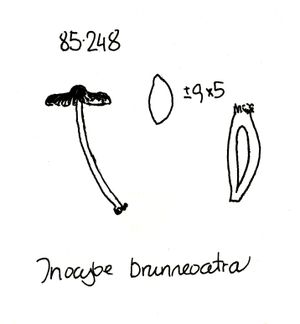 85.248
±9x5
Inocybe brunneoatra